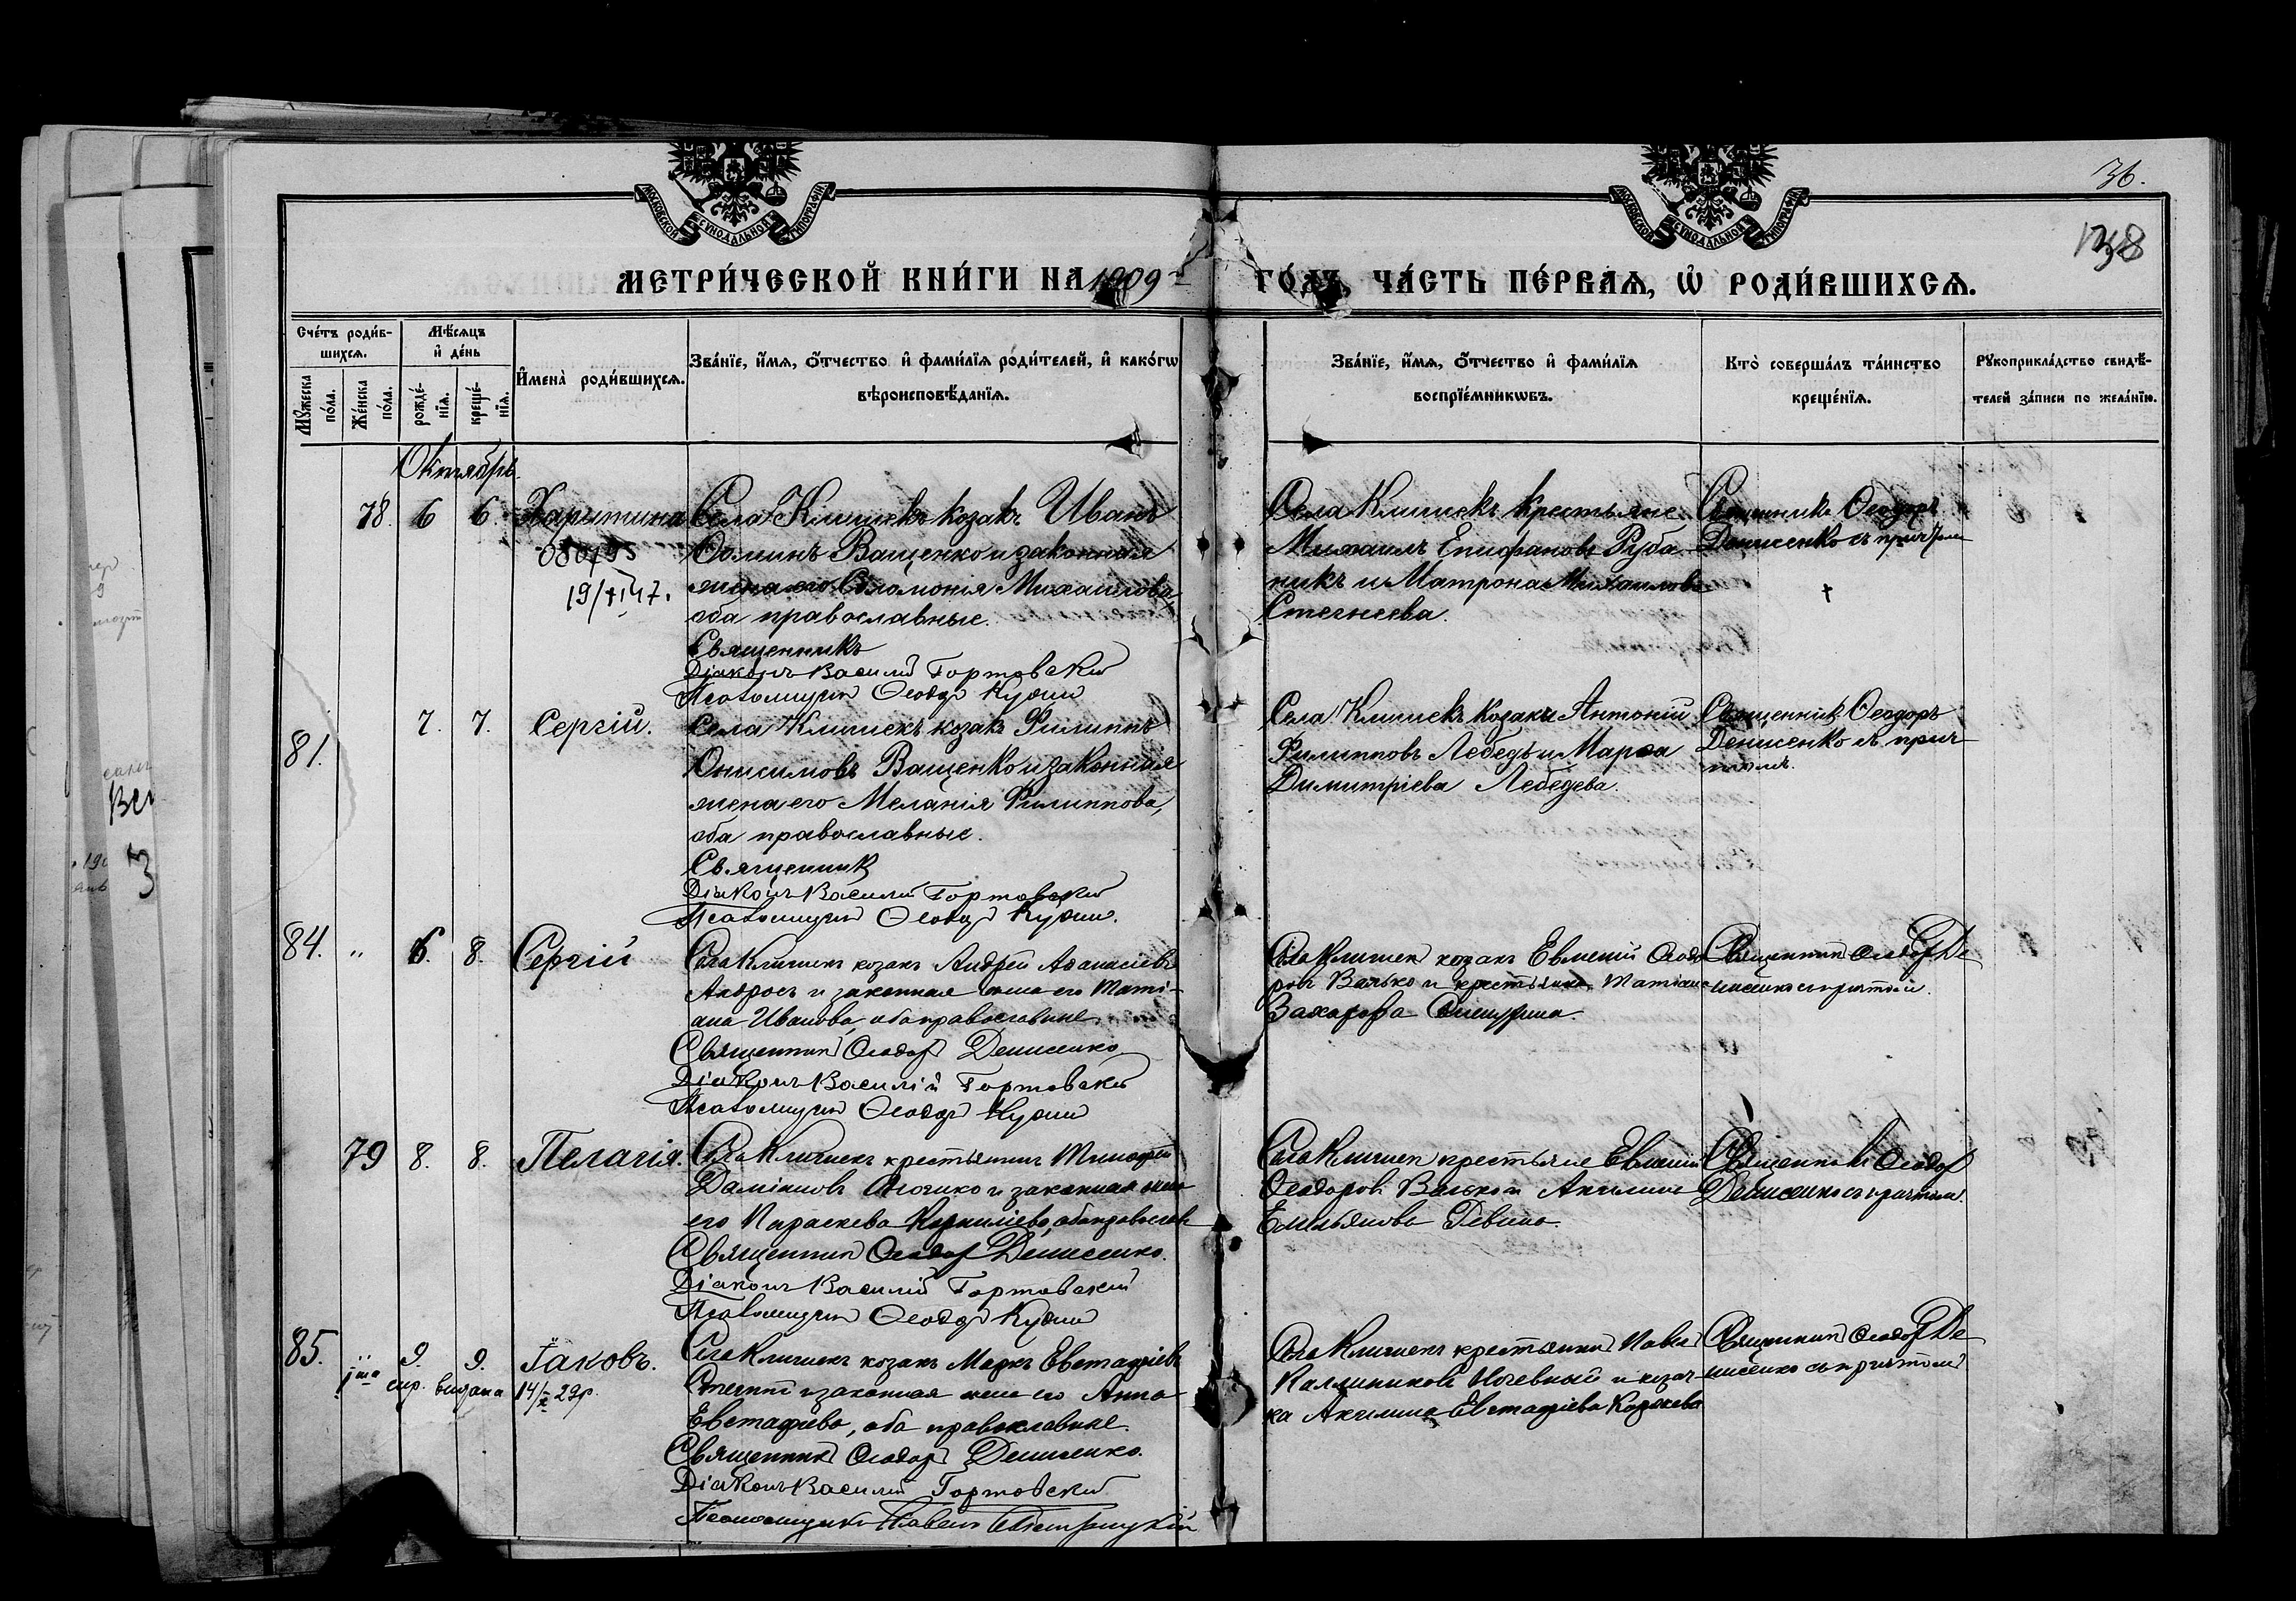 36.
138
МОСКОВСКОЙ СѴНОДАЛЬНОЙ ТИПОГРАФІИ
МОСКОВСКОЙ СѴНОДАЛЬНОЙ ТИПОГРАФІИ
МЕТРИ́ЧЕСКОЙ КНИ́ГИ НА 1909 ГО́ДЪ, ЧА́СТЬ ПЕ́РВАѦ, Ѡ РОДИ́ВШИХСѦ.
Сче́тъ роди́в-
шихсѧ.
Мꙋ́жеска по́ла.
Же́нска по́ла.
Мѣ́сѧцъ и де́нь
рожде́-
нїѧ.
креще́-
нїѧ.
Имена̀ роди́вшихсѧ.
Зва́нїе, и́мѧ, о́тчество и фами́лїѧ роди́телей, и како́гѡ
вѣроисповѣ́данїѧ.
Зва́нїе, и́мѧ, о́тчество и фами́лїѧ
воспрїе́мникѡвъ.
Кто̀ соверша́лъ та́инство
креще́нїѧ.
Рꙋкоприкла́дство свидѣ́-
телей за́писи по жела́нїю.
Октябрь.
78. 6 6. Харитина
19/XI 47.
Села Клишекъ козакъ Иванъ
Ѳоминъ Ващенко и законная
жена его Соломонія Михаилова,
оба православные.
Священникъ
Діаконъ Василій Гортовскій
Псаломщикъ Ѳеодоръ
Села Клишекъ крестьяне
Михаилъ Епифановъ Руба
никъ и Матрона Михаилова
Стегнеева.
Священникъ Ѳеодоръ
Денисенко съ причтом
81. 7. 7. Сергій.
Села Клишекъ козакъ Филиппъ
Онисимовъ Ващенко и законная
жена его Меланія Филиппова,
оба православные.
Священник
Діаконъ Василій Гортовскій
Псаломщикъ Ѳеодоръ
Села Клишекъ козаки Антоній
Филипповъ Лебедь и Марѳа
Димитріева Лебедева.
Священникъ Ѳеодоръ
Денисенко съ прич
томъ.
84. " 6. 8. Сергій
Села Клишекъ козакъ Андрей Аѳанасіевъ
и законная жена его Тати-
ана Иванова, оба православные
Священникъ Ѳеодоръ Денисенко
Діаконъ Василій Гортовскій
Псаломщикъ Ѳеодоръ
Села Клишек козакъ Евмений Ѳеодо
ровъ Валько и крестьянка Татіана
Захарова
Священникъ Ѳеодоръ Де
нисенко съ причтомъ.
79 8. 8. Пелагія.
Села Клишекъ крестьянинъ Тимофей
Даміановъ и законная жена
его Параскева Корниліева, оба православ
Священникъ Ѳеодоръ Денисенко.
Діаконъ Василій Гортовскій
Псаломщикъ Ѳеодоръ
Села Клишек крестьяне Евмений
Ѳеодоровъ Валько и Акилина
Емильянова
Священникъ Ѳеодоръ
Денисенко съ причтом.
85. " 9. 9. Іаковъ.
спр. видана 14/X 29р.
Села Клишекъ козакъ Маркъ Евстафіевъ
и законная жена его Анна
Евстафіева, оба православные.
Священникъ Ѳеодоръ Денисенко.
Діаконъ Василій Гортовскій
Псаломщикъ Павелъ
Села Клишекъ крестьянинъ Павел
Каллиниковъ и козач
ка Акилина Евстафіева
Священникъ Ѳеодоръ Де
нисенко съ причтомъ